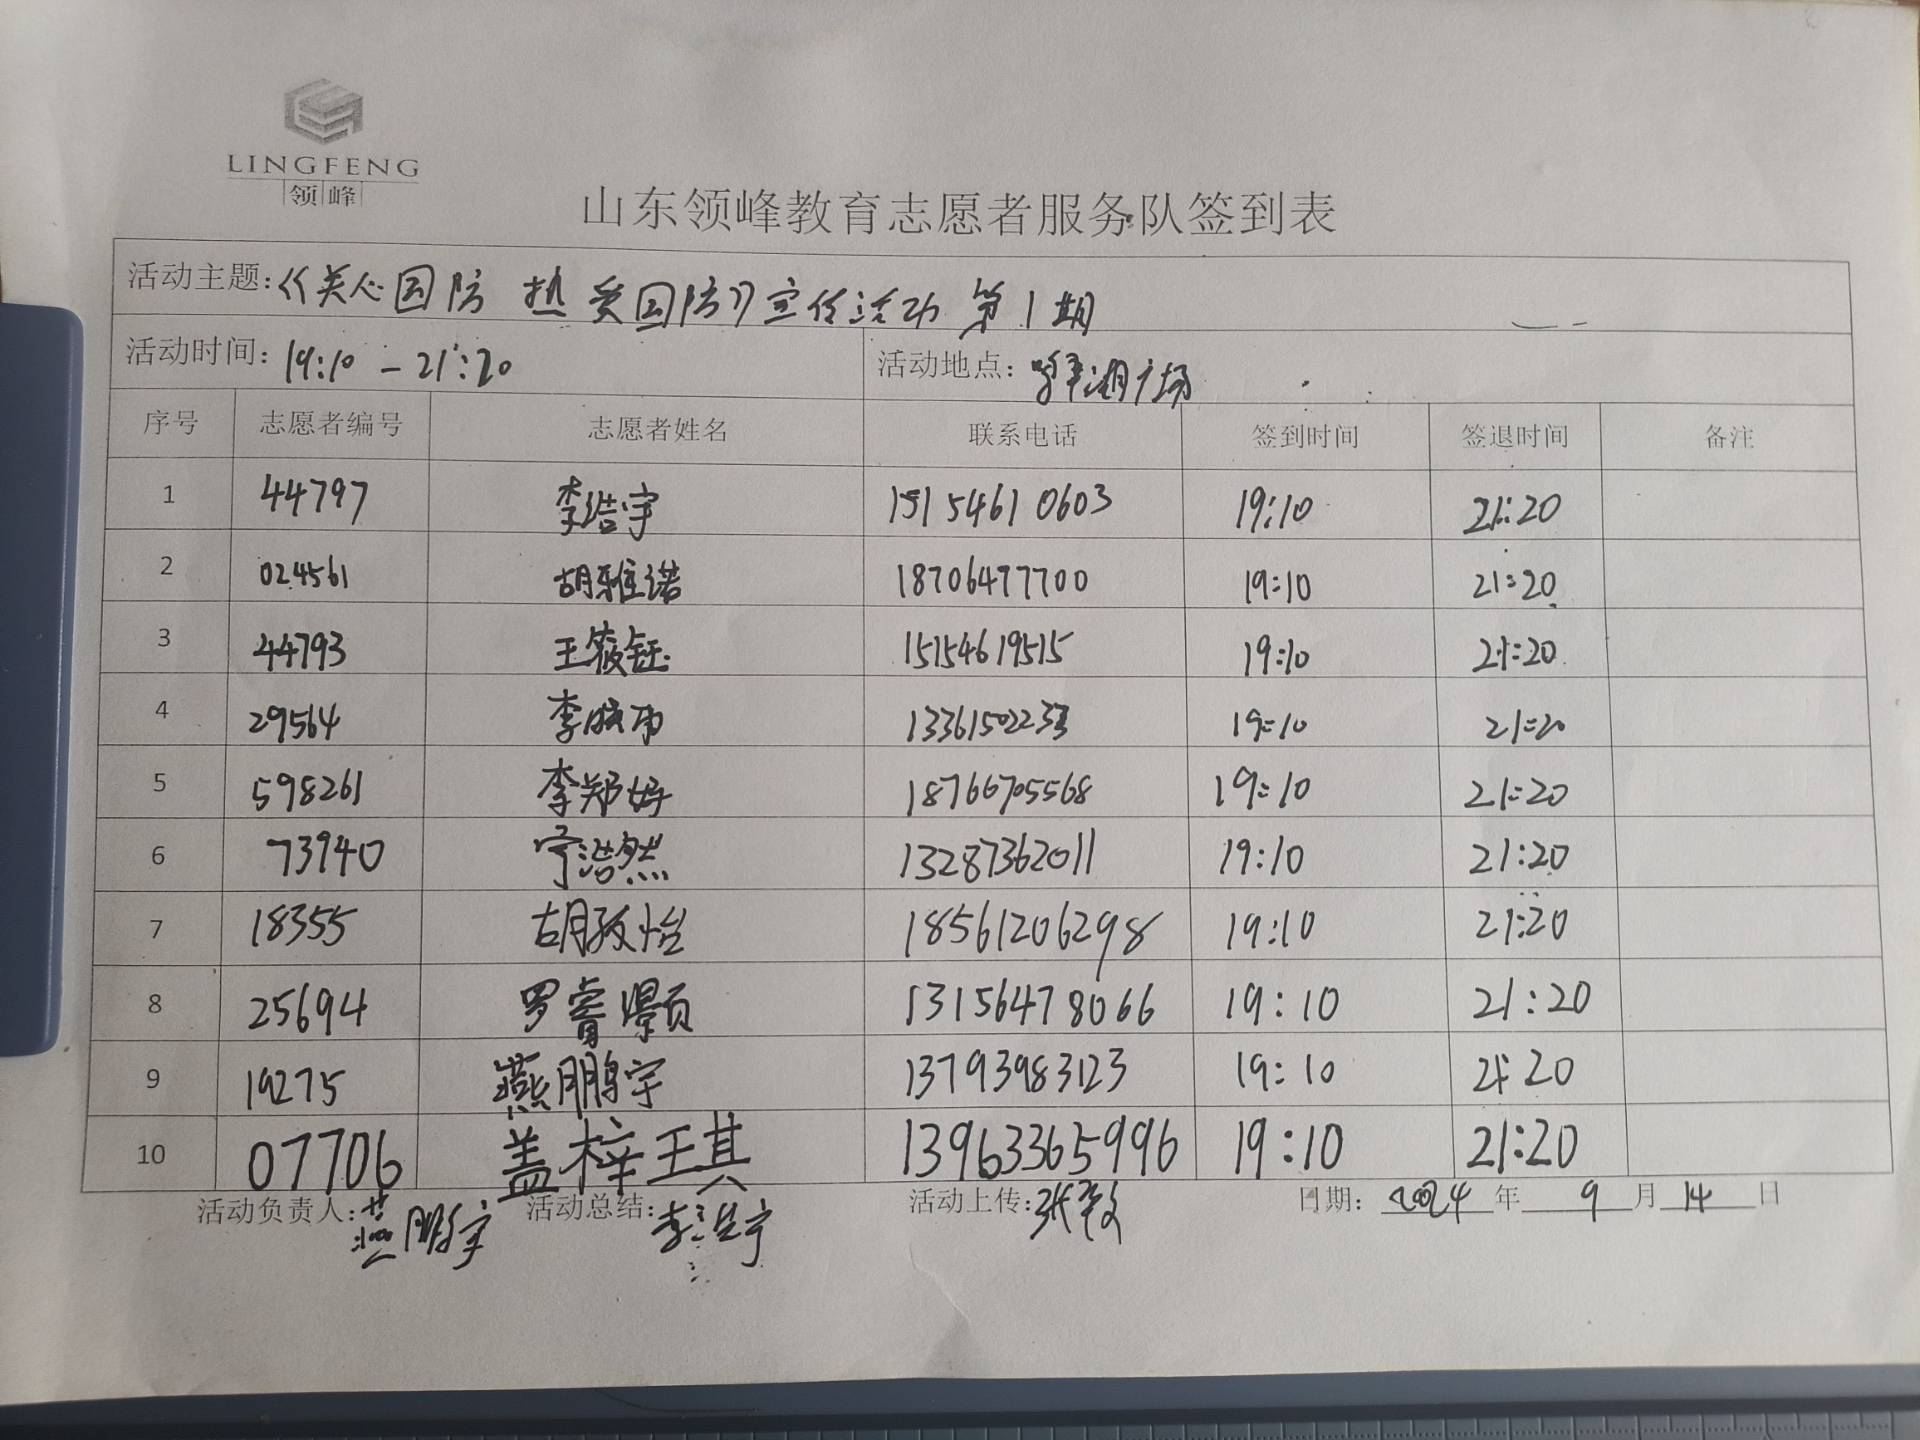 LINGFENG
领峰
山东领峰教育志愿者服务队签到表
活动主题:《关心国防 热爱国防》宣传活动 第1期
活动时间: 19:10 - 21:20 活动地点: 广场
序号 志愿者编号 志愿者姓名 联系电话 签到时间 签退时间 备注
1 44797 李浩宇 15154610603 19:10 21:20
2 024561 胡雅诺 18706477700 19:10 21:20
3 44793 王筱钰 15154619515 19:10 21:20
4 29564 李 19:10 21:20
5 598261 李郑好 18766705568 19:10 21:20
6 73940 宁浩然 13287362011 19:10 21:20
7 18355 胡 怡 18561206298 19:10 21:20
8 25694 罗睿灏 13156478066 19:10 21:20
9 19275 燕鹏宇 13793983123 19:10 21:20
10 07706 盖梓琪 13963365996 19:10 21:20
活动负责人: 燕鹏宇 活动总结: 李浩宇 活动上传: 张 日期: 2024 年 9 月 14 日